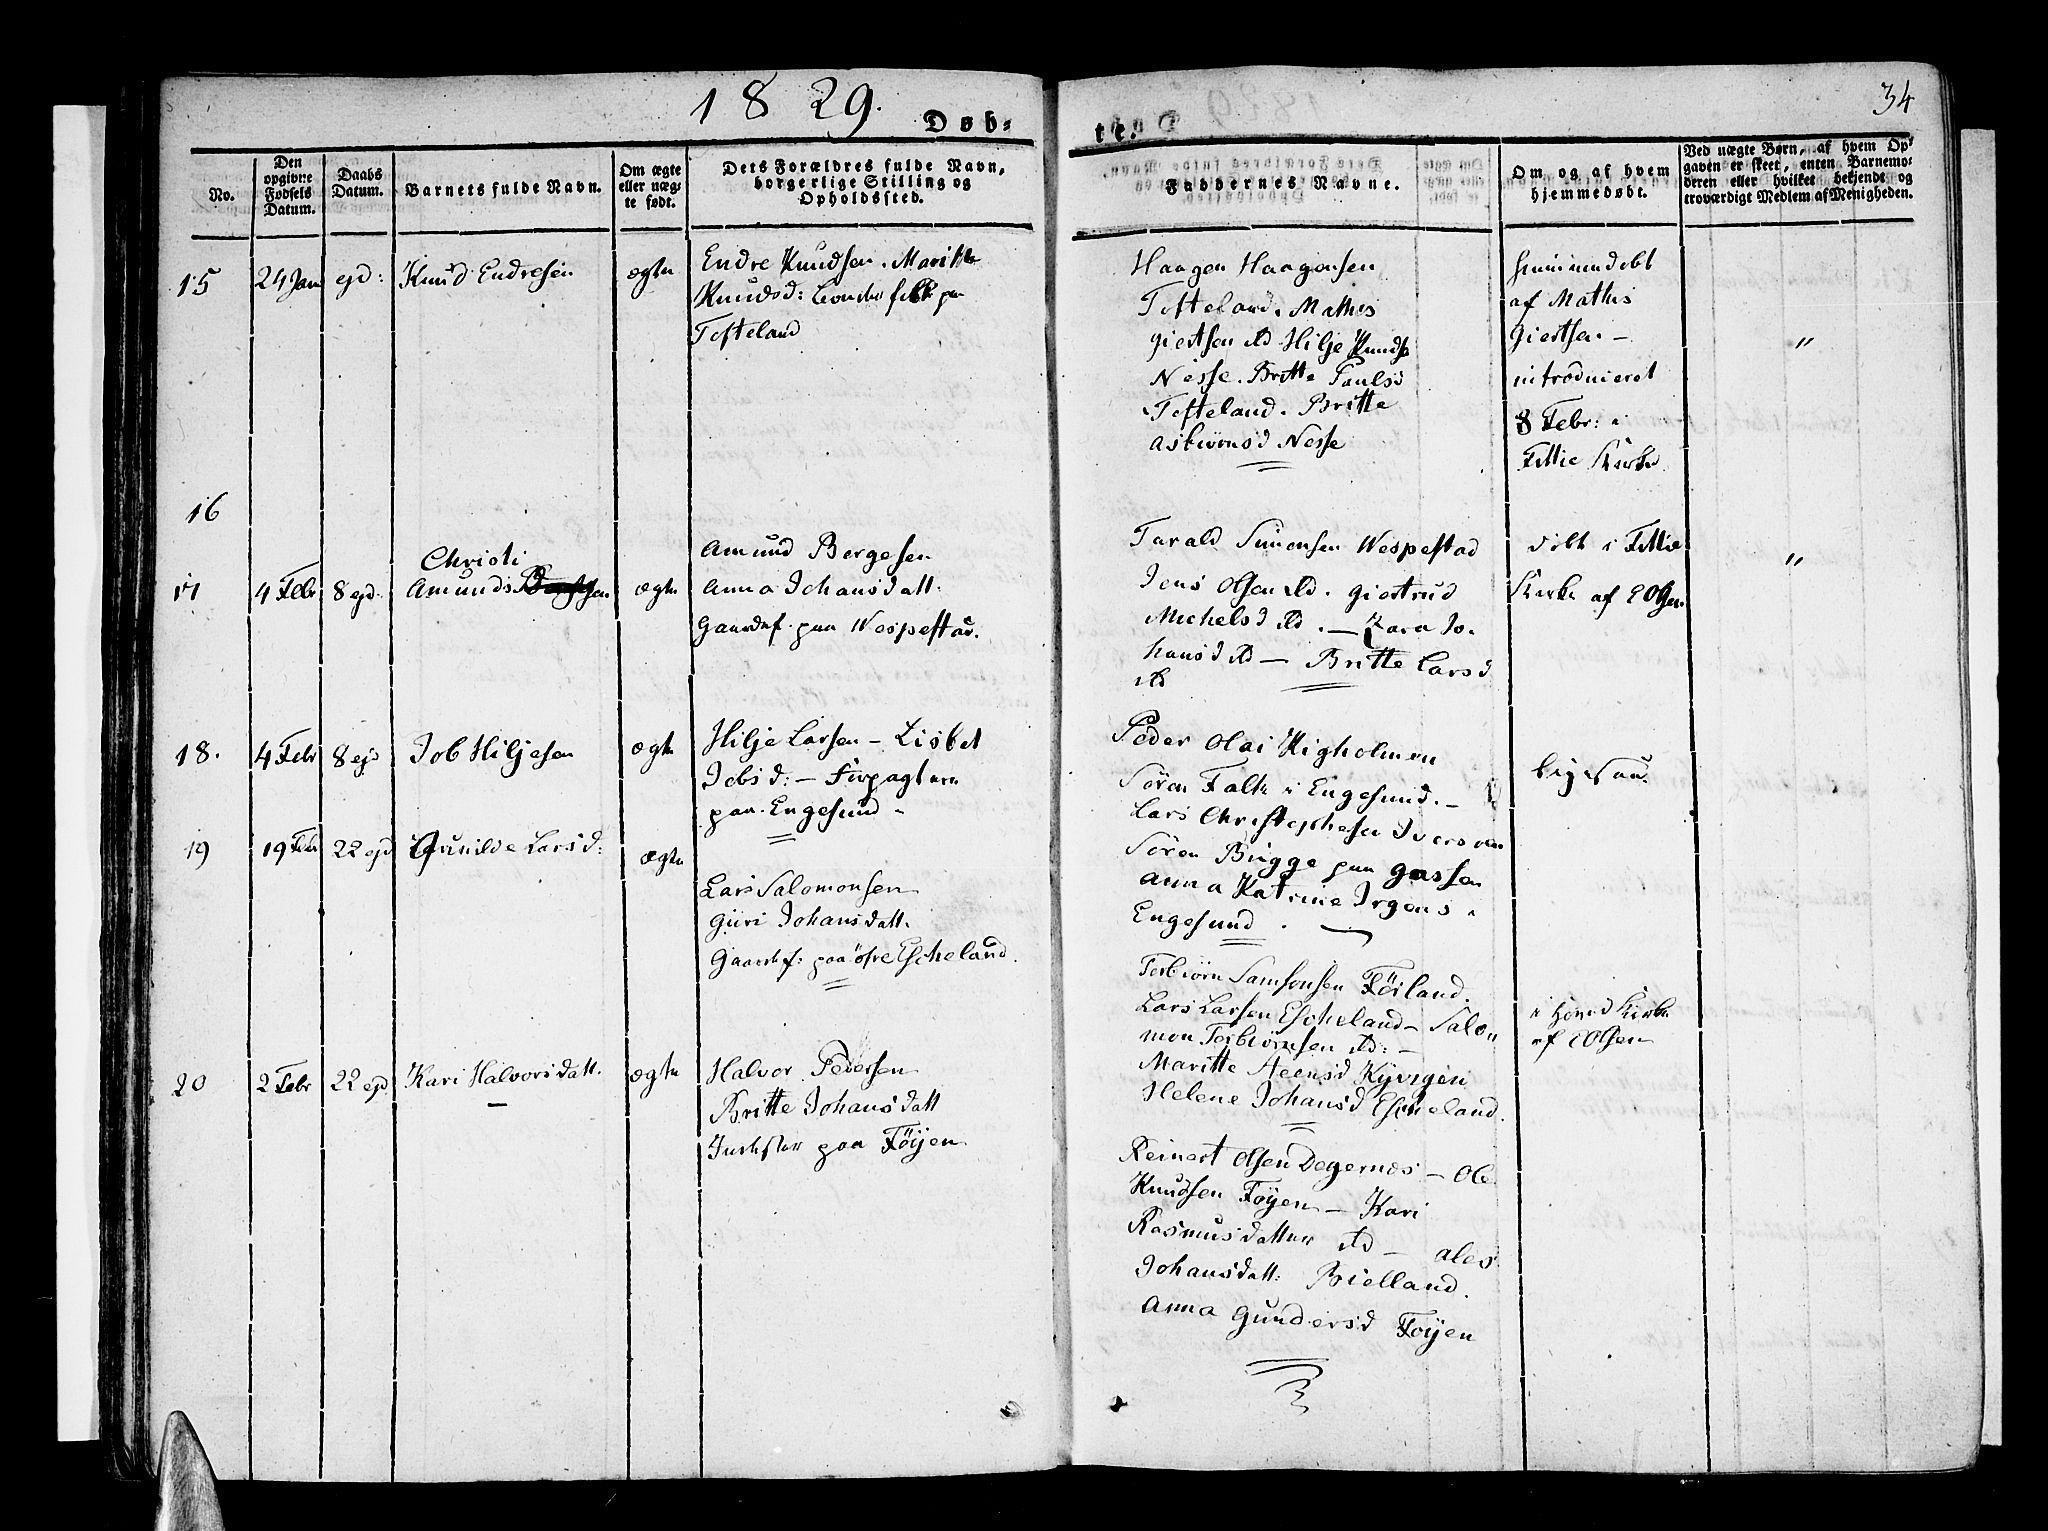 1829.
34
Døb-
te.
No.
Den opgivne Fødsels Datum.
Daabs Datum.
Barnets fulde Navn.
Om ægte eller uægte født.
Dets Forældres fulde Navn, borgerlige Stilling og Opholdssted.
Faddernes Navne.
Om og af hvem hjemmedøbt.
Ved uægte Børn, af hvem Opgaven er skeet, enten Barnemoderen eller hvilket bekjendt og troværdigt Medlem af Menigheden.
15
24 Jan
ejd:
Knud Endresen
ægte
Endre Knudsen. Maritte
Knudsd: bondefolk paa
Tofteland
Haagen Haagensen
Tofteland. Mathis
Giertsen ibd Hilje Knuds
Nesse. Britte Paulsd
Tofteland. Britte
Asbiørnsd Nesse
hjemmedøbt
af Mathis
Giertsen –
introduceret
8 Febr: i
Fittie Kirke
"
16
17
4 Febr
8 ejd.
Christi
Amundsd
ægte
Amund Børgesen
Anna Johansdatt.
Gaardmf. paa Wespestad.
Tarald Simonsen Wespestad
Jens Olsen ibd. Giertrud
Michelsd ibd. – Zara Jo-
hansd ibd – Britte Larsd
ibd
døbt i Fittie
Kirke af EOlsen
"
18.
4 Febr
8 ejd
Job Hiljesen
ægte
Hilje Larsen – Lisbet
Jobsd: – Forpagtere
paa Engesund –
Peder Olai Kigholmen
Søren Falk i Engesund. –
Lars Christophersen Iversøen
Søren Bugge paa Gassen
Anna Katrine Irgens i
Engesund. –
ligesaa.
19
19 Feb
22 ejd
Gunilde Larsd:
ægte
Lars Salomonsen
Guri Johansdatt.
Gaardmf: paa øfre Escheland.
Torbiørn Samsonsen Føiland.
Lars Larsen Escheland – Salo
mon Torbiørnsen ibd: –
Maritte Aeensd Kyvigen
Helene Johansd Escheland.
i Hoved Kirke
af EOlsen
20
2 Febr
22 ejd
Kari Halvorsdatt.
ægte
Halvor Pedersen
Britte Johansdatt
Inderster paa Føyen
Reinert Olsen Degernes – Ole
Knudsen Føyen – Kari
Rasmusdatter ibd – Ales
Johansdatt: Bielland.
Anna Gundersd Føyen